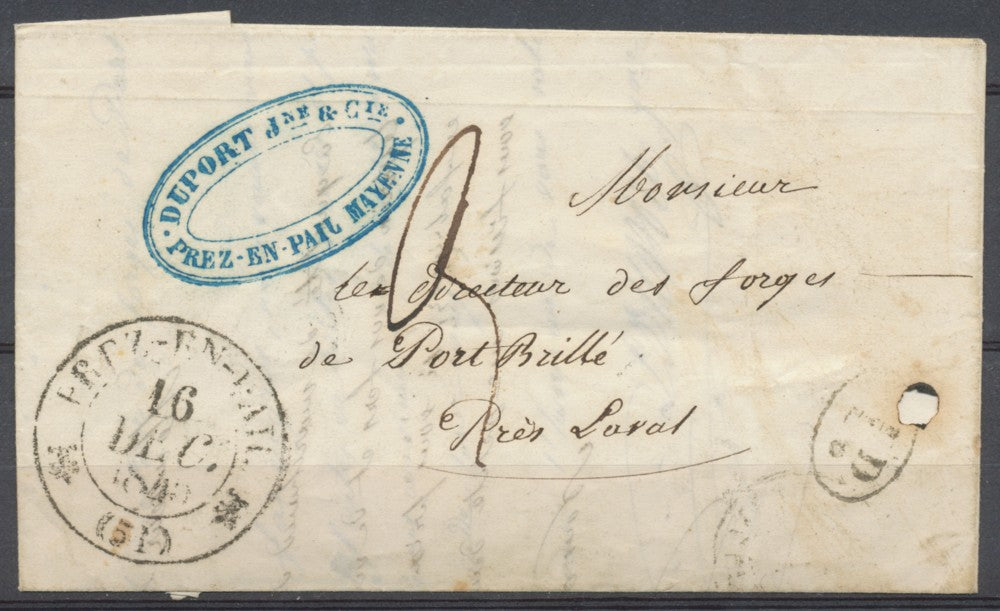 DUPORT JNE & CIE
PREZ-EN-PAIL MAYENNE
Monsieur
le directeur des forges
de Port Brillé
Près Laval
PREZ-EN-PAIL
16
DEC.
(51)
D